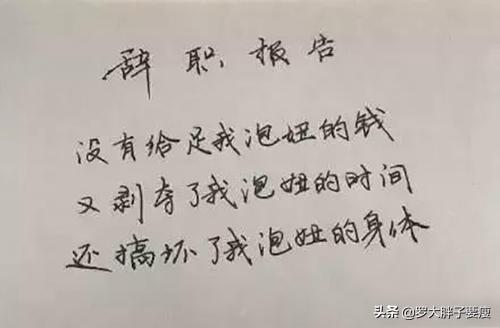 辞职报告
没有给足我泡妞的钱
又剥夺了我泡妞的时间
还搞坏了我泡妞的身体
头条 @罗大胖子要瘦